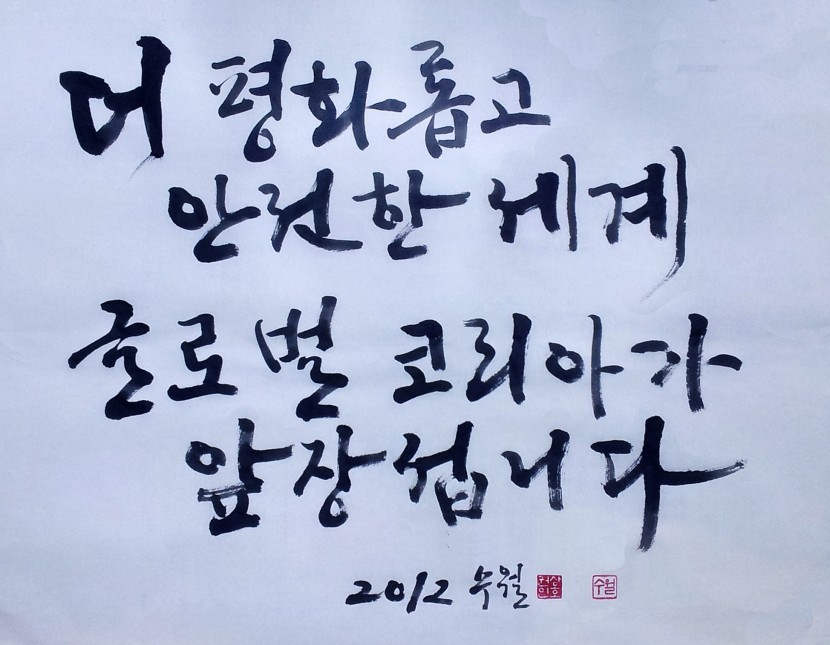 더 평화롭고
안전한 세계
글로벌 코리아가
앞장섭니다
2012 수월
수월